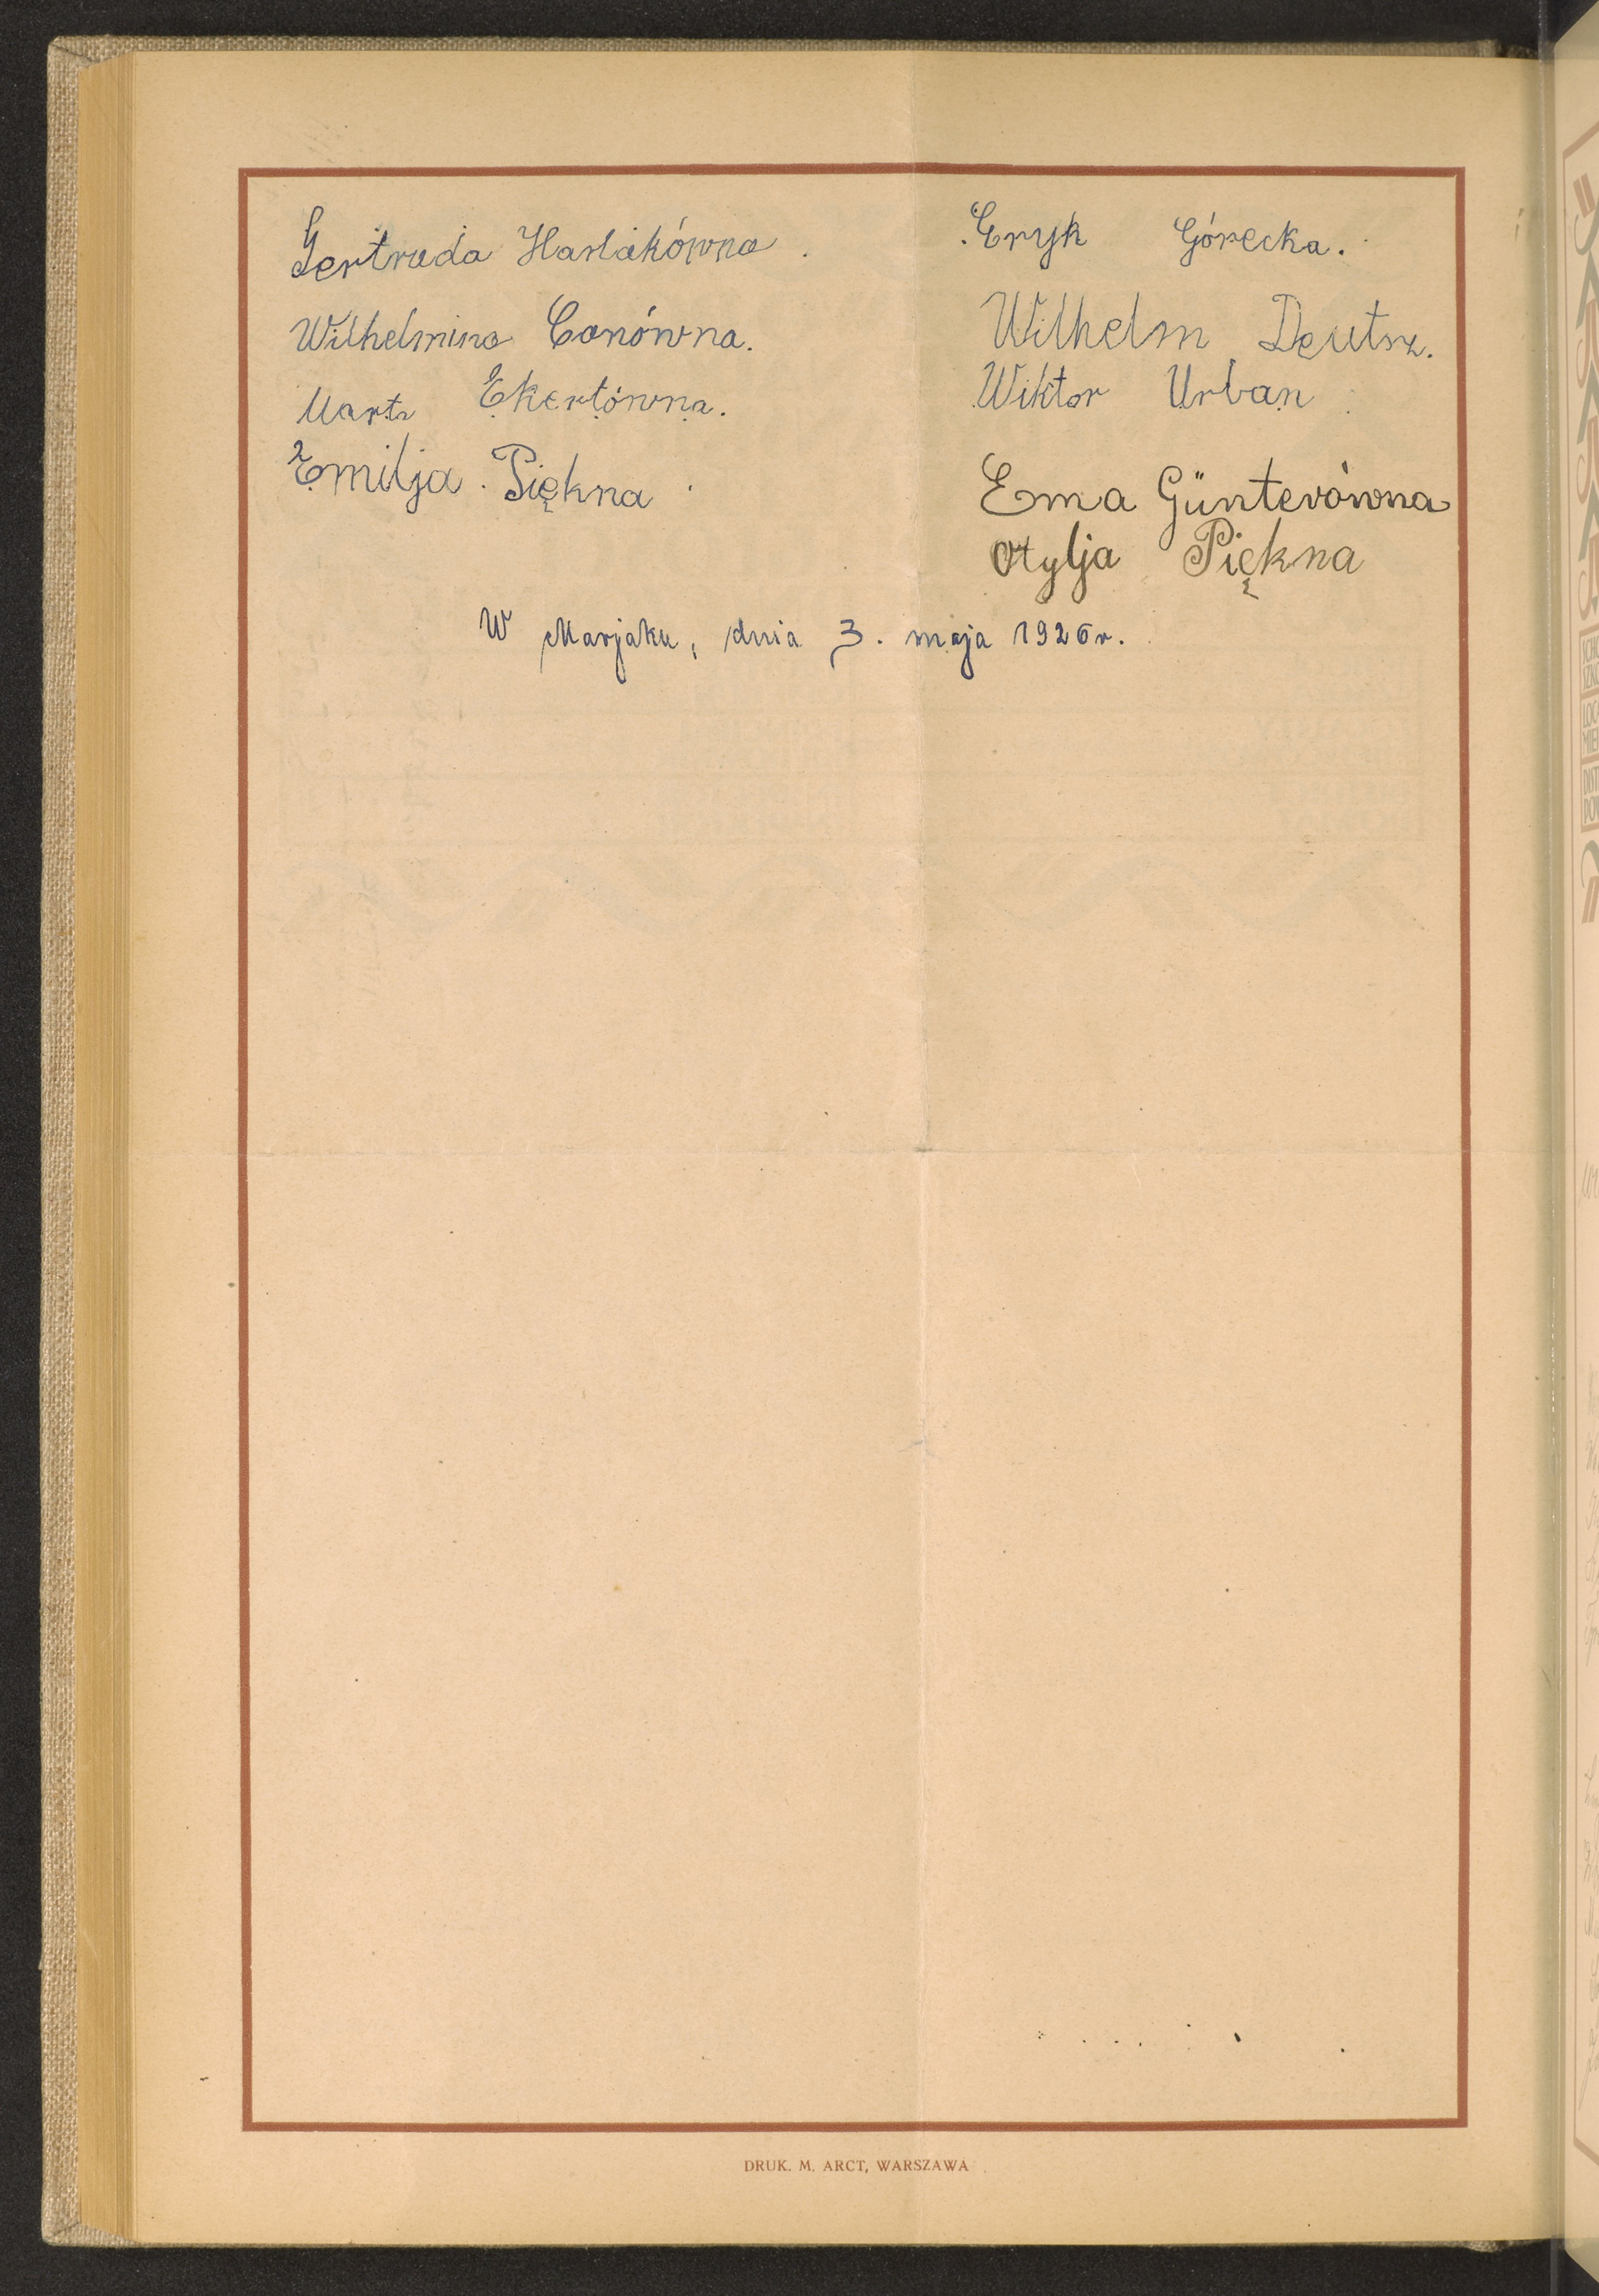 Gertruda Harlakówna.
Wilhelmina Conówna.
Marta Ekertówna.
Emilja Piękna
Eryk Górecka.
Wilhelm Deutsz.
Wiktor Urban
Ema Günterówna
Otylja Piękna
W Marjaku, dnia 3. maja 1926 r.
DRUK. M. ARCT, WARSZAWA